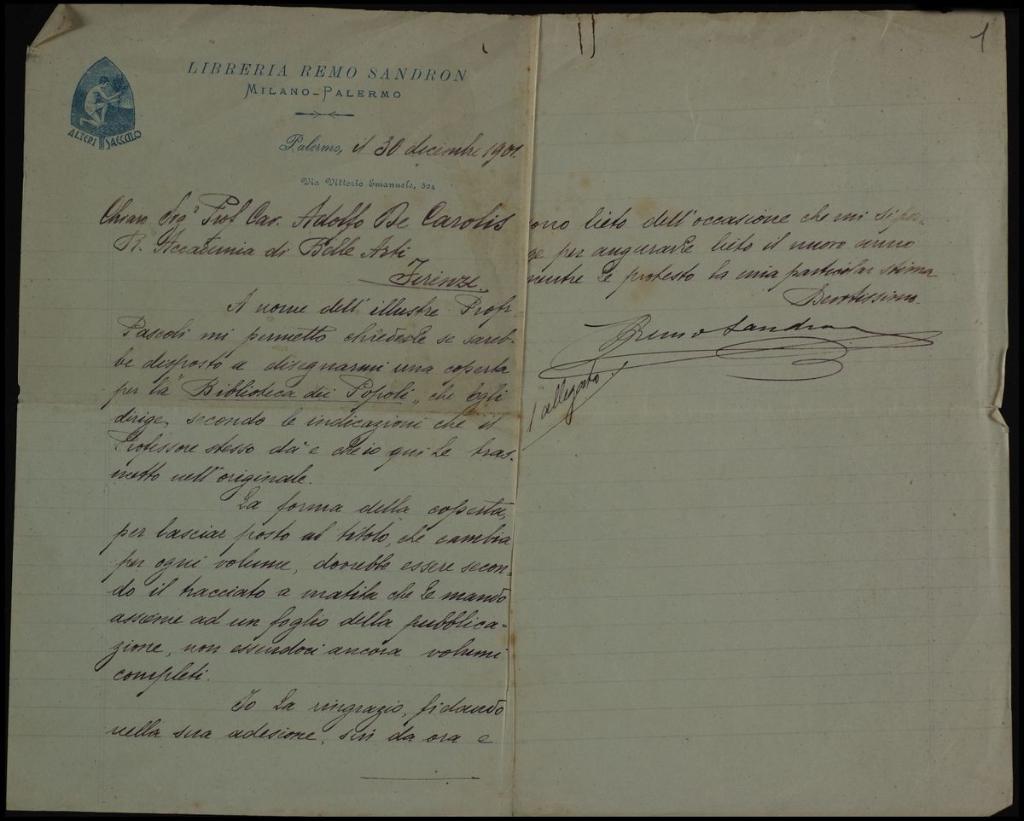 1
LIBRERIA REMO SANDRON
MILANO-PALERMO
ALTERI SAECULO
Palermo, il 30 decembre 1901.
Via Vittorio Emanuele, 324
Chiaro Sig.r Prof. Cav. Adolfo De Carolis
R. Accademia di Belle Arti
Firenze.
A nome dell'illustre Prof.
Pascoli mi permetto chiederle se sareb-
be disposto a disegnarmi una coperta
per la "Biblioteca dei Popoli", che egli
dirige, secondo le indicazioni che il
Professore stesso dà e che io qui Le tras-
metto nell'originale.
La forma della coperta,
per lasciar posto al titolo, che cambia
per ogni volume, dovrebbe essere secon-
do il tracciato a matita che Le mando
assieme ad un foglio della pubblica-
zione, non essendoci ancora volumi
completi.
Io La ringrazio, fidando
nella sua adesione, sin da ora e
sono lieto dell'occasione che mi si por-
ge per augurarle lieto il nuovo anno
mentre Le protesto la mia particolar stima
Devotissimo
Remo Sandron
1 allegato